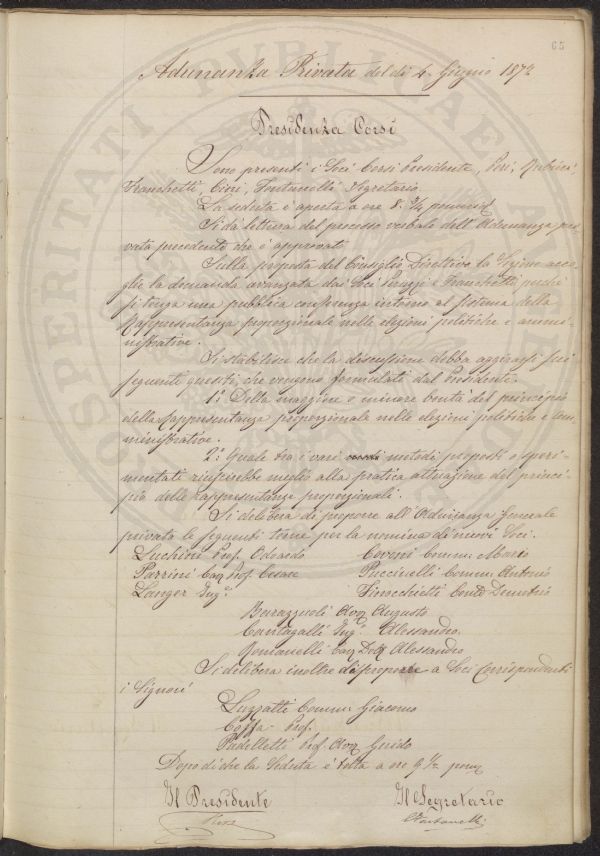 65
Adunanza Privata del dì 4 Giugno 1872
Presidenza Corsi
Sono presenti i Soci Corsi Presidente, Peri, Rubieri,
Franchetti, Cini, Fontanelli Segretario.
La seduta è aperta a ore 8. 3/4 pomerid.
Si dà lettura del processo verbale dell'Adunanza pri-
vata precedente che è approvato
Sulla proposta del Consiglio Direttivo la Sezione acco-
glie la domanda avanzata dai Soci Peruzzi e Franchetti perché
si tenga una pubblica conferenza intorno al sistema della
Rappresentanza proporzionale nelle elezioni politiche e ammi-
nistrative.
Si stabilisce che la discussione debba aggirarsi sui
seguenti quesiti, che vengono formulati dal Presidente.
1.° Della maggiore o minore bontà del principio
della Rappresentanza proporzionale nelle elezioni politiche e am-
ministrative.
2.° Quale tra i vari metodi proposti o speri-
mentati riuscirebbe meglio alla pratica attuazione del princi-
pio della rappresentanza proporzionale.
Si delibera di proporre all'Adunanza Generale
privata le seguenti terne per la nomina di nuovi Soci.
Luchini Prof. Odoardo
Covoni Comm. Mario
Parrini Cav Prof. Cesare
Puccinelli Comm. Antonio
Langer Ing.r
Finocchietti Conte Demetrio
Barazzuoli Avv. Augusto
Cantagalli Ing.r Alessandro
Romanelli Cav Dott Alessandro
Si delibera inoltre di proporre a Soci Corrispondenti
i Signori
Luzzatti Comm: Giacomo
Coffa - Prof.
Padelletti Prof. Avv. Guido
Dopo di che la Seduta è tolta a ore 9 1/2 pom
Il Presidente
Il Segretario
C Fontanelli
PROSPERITATI PUBLICAE AUGENDAE